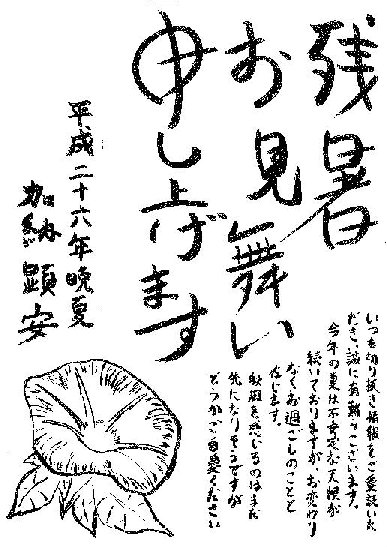 残暑
お見舞い
申し上げます
いつも切り抜き情報をご愛読いた
だき、誠に有難うございます。
今年の夏は不安定な天候が
続いておりますが、お変わり
なくお過ごしのことと
存じます。
秋風を感じるのはまだ
先になりそうですが
どうかご自愛ください
平成二十六年晩夏
加納顕安